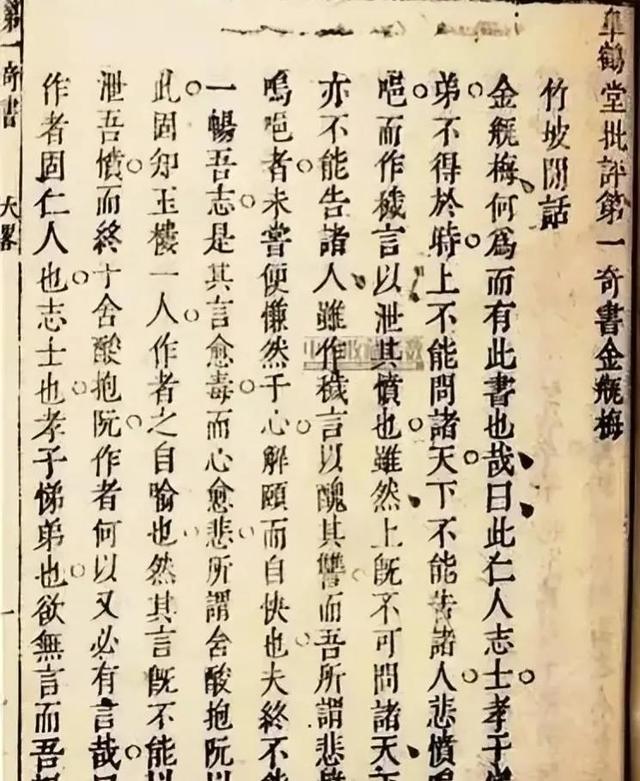 皐鶴堂批評第一奇書金瓶梅
竹坡閒話
金瓶梅何爲而有此書也哉曰此仁人志士孝子
弟不得於時上不能問諸天下不能告諸人悲憤嗚
唈而作穢言以泄其憤也雖然上既不可問諸天下
亦不能告諸人雖作穢言以醜其讐而吾所謂悲憤
嗚唈者未嘗便慊然于心解頤而自快也夫終不能
一暢吾志是其言愈毒而心愈悲所謂含酸抱阮以
此固知玉樓一人作者之自喻也然其言既不能以
泄吾憤而終于含酸抱阮作者何以又必有言哉曰
作者固仁人也志士也孝子悌弟也欲無言而吾
第一奇書 大畧 一